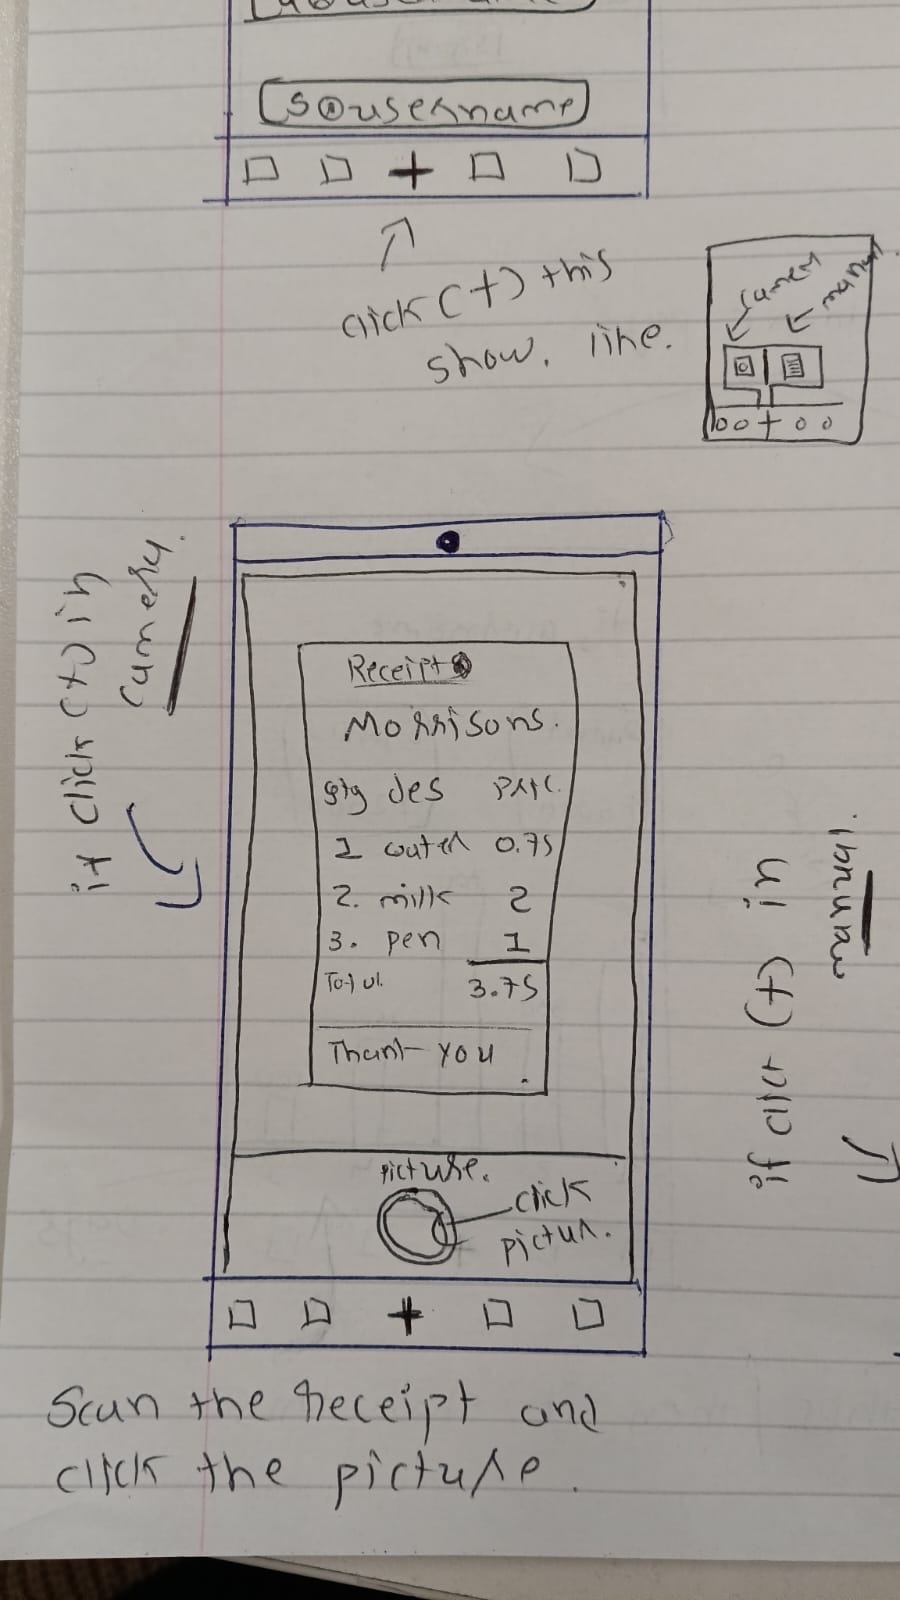 50username
+
click (+) this
show. like.
camera
manual
+
if click (+) in
camera.
Receipt
Morrisons.
qty des price.
1 water 0.75
2. milk 2
3. pen 1
Total. 3.75
Thank you
if click (+) in
manual.
picture.
click
picture.
+
Scan the receipt and
click the picture.